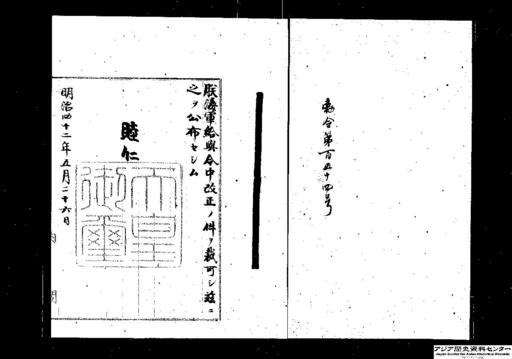 勅令第百五十四号
朕海軍給與令中改正ノ件ヲ裁可シ茲ニ
之ヲ公布セシム
睦仁
天皇
御璽
明治四十二年五月二十六日
内
閣
アジア歴史資料センター
Japan Center for Asian Historical Records